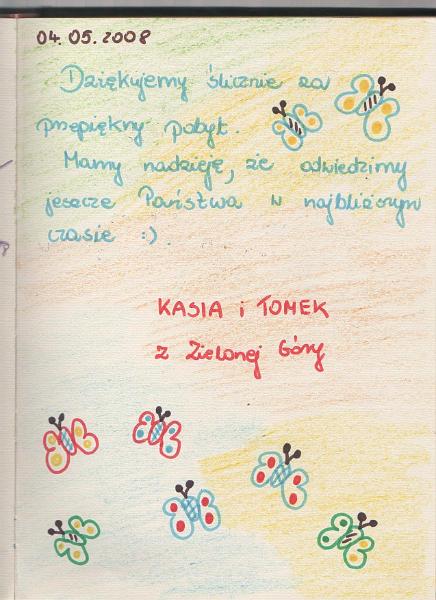 04.05.2008
Dziękujemy ślicznie za
przepiękny pobyt.
Mamy nadzieję, że odwiedzimy
jeszcze Państwa w najbliższym
czasie :)
KASIA i TOMEK
z Zielonej Góry